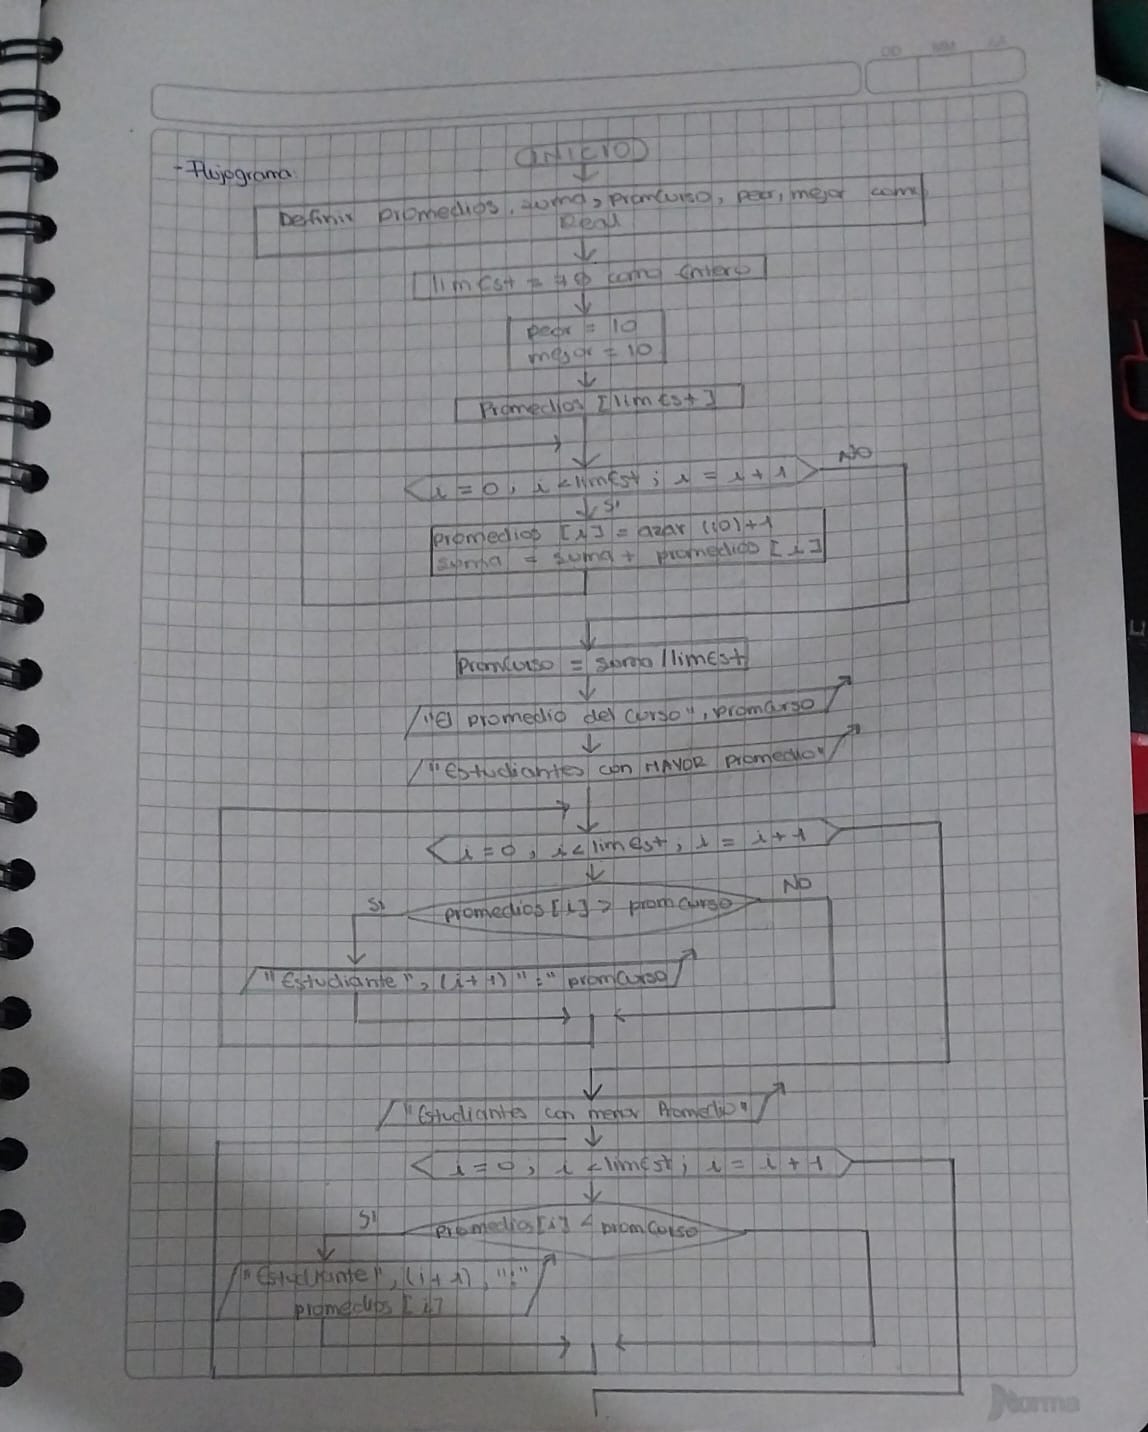 DD MM AA
- Flujograma
INICIO
Definir promedios, suma, promcurso, peor, mejor como
Real
limEst = 40 como Entero
peor = 10
mejor = 10
Promedios [limEst]
i = 0, i < limEst; i = i + 1
NO
Si
promedios [i] = azar (10)+1
suma = suma + promedios [i]
promcurso = suma / limEst
"El promedio del curso", promcurso
"Estudiantes con MAYOR promedio"
i = 0, i < limEst, i = i + 1
promedios [i] > promcurso
SI
NO
"Estudiante", (i + 1) ":" promcurso
"Estudiantes con menor Promedio"
i = 0; i < limEst; i = i + 1
SI
promedio [i] < promcurso
"Estudiante", (i + 1), ":"
promedios [i]
Norma